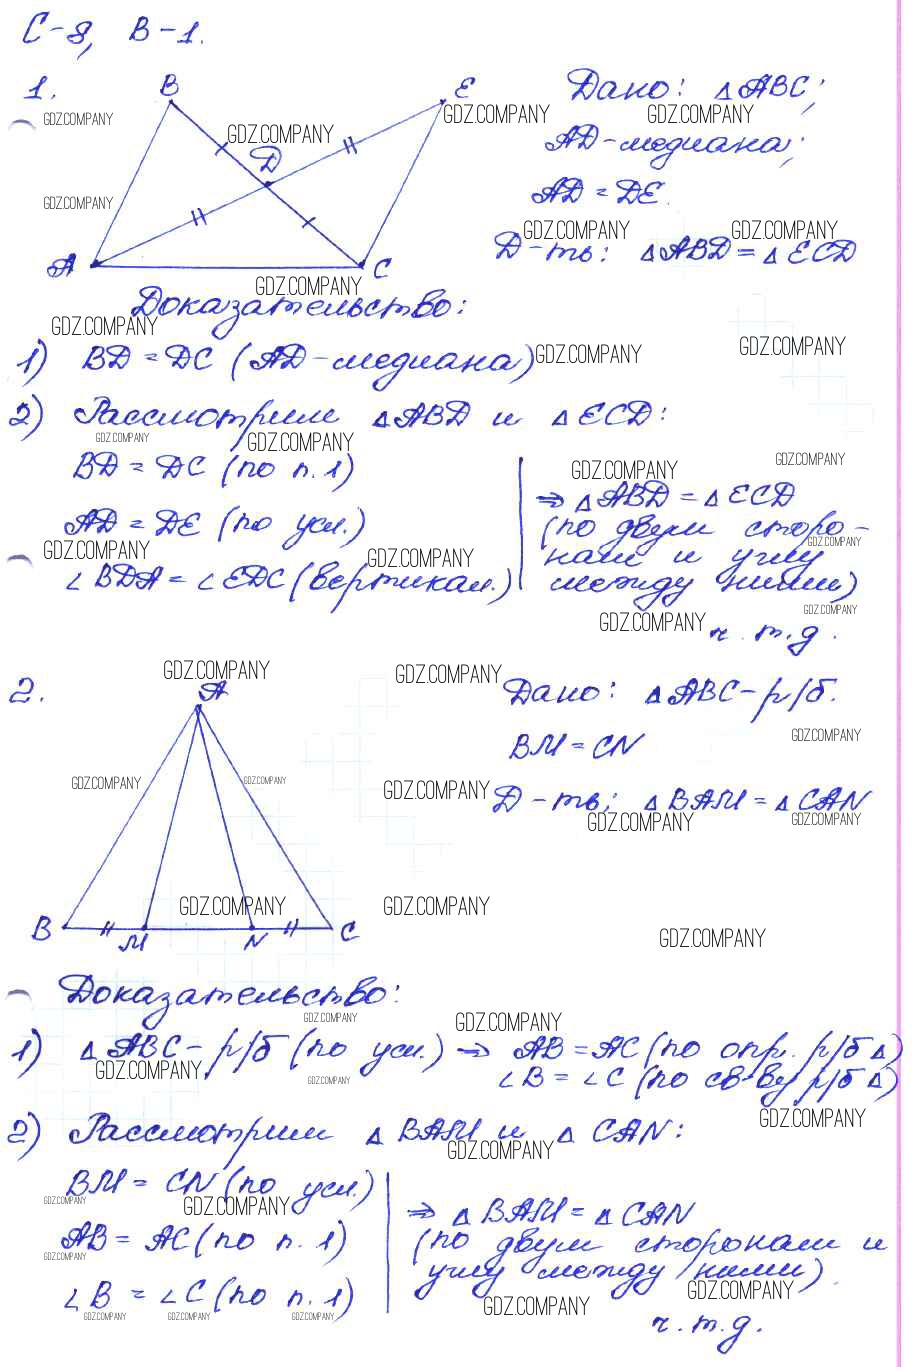 С-8, В-1.
1.
B
E
D
A
C
Дано: △ABC;
AD-медиана;
AD = DE.
Д-ть: △ABD = △ECD
Доказательство:
1) BD = DC (AD-медиана)
2) Рассмотрим △ABD и △ECD:
BD = DC (по п. 1)
AD = DE (по усл.)
∠BDA = ∠EDC (вертикал.)
⇒ △ABD = △ECD
(по двум сторо-
нам и углу
между ними)
ч.т.д.
2.
A
B
M
N
C
Дано: △ABC - р/б.
BM = CN
Д-ть: △BAM = △CAN
Доказательство:
1) △ABC - р/б (по усл.) ⇒ AB = AC (по опр. р/б △)
∠B = ∠C (по св-ву р/б △)
2) Рассмотрим △BAM и △CAN:
BM = CN (по усл.)
AB = AC (по п. 1)
∠B = ∠C (по п. 1)
⇒ △BAM = △CAN
(по двум сторонам и
углу между ними)
ч.т.д.
GDZ.COMPANY